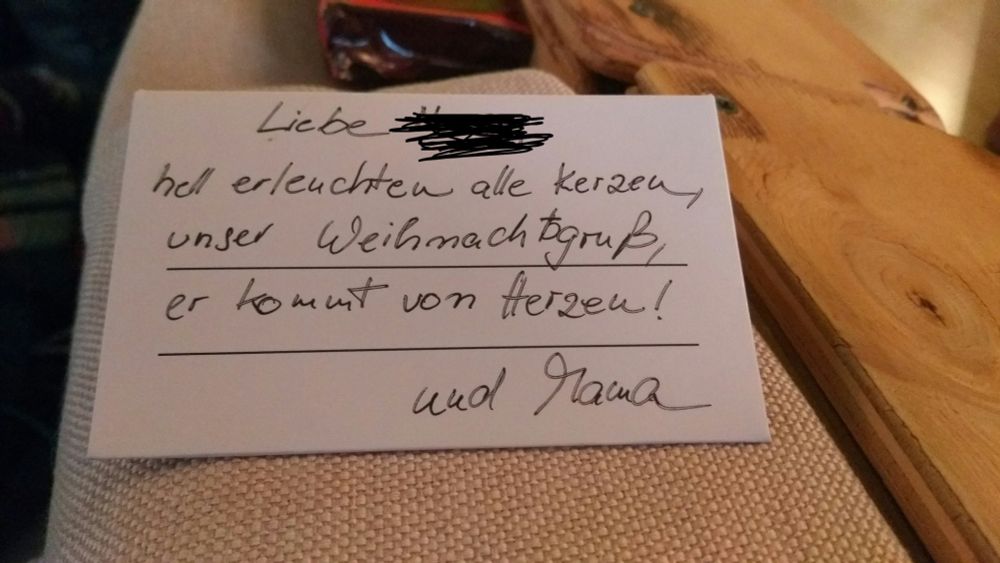 Liebe
hell erleuchten alle Kerzen,
unser Weihnachtsgruß,
er kommt von Herzen!
und Mama